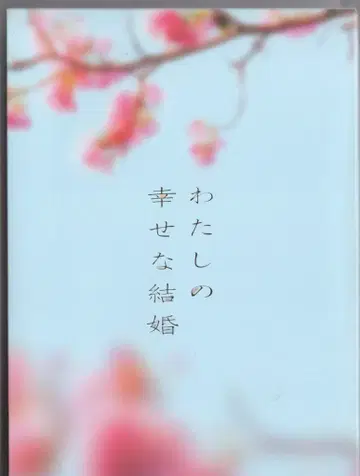 わたしの
幸せな結婚